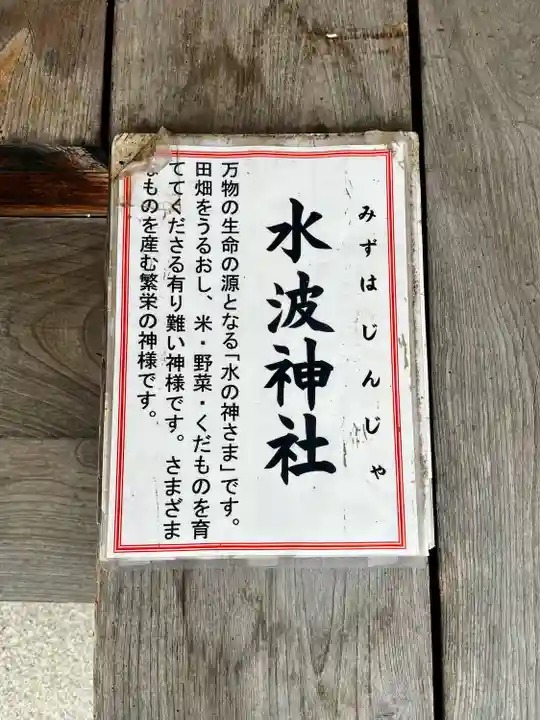 みずはじんじゃ
水波神社
万物の生命の源となる「水の神さま」です。
田畑をうるおし、米・野菜・くだものを育
ててくださる有り難い神様です。さまざま
なものを産む繁栄の神様です。